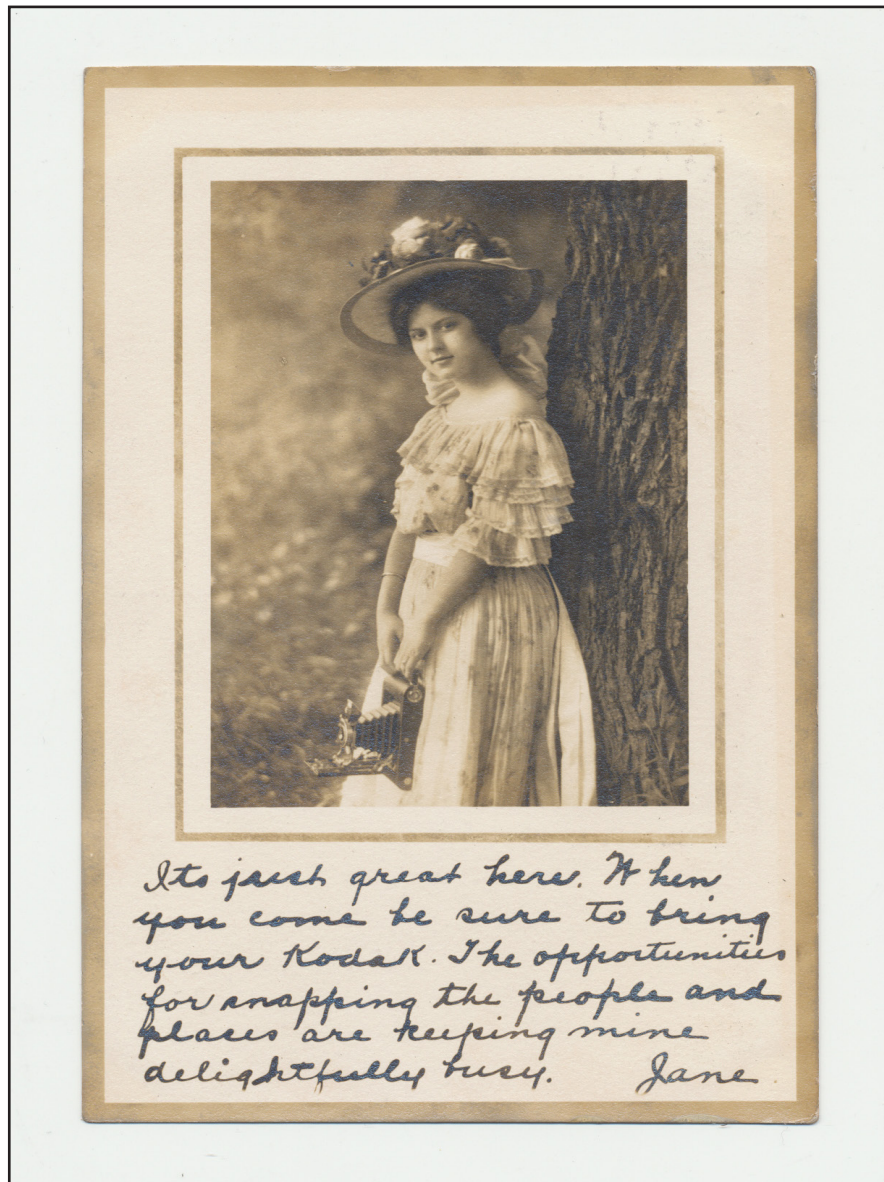 Its just great here. When
you come be sure to bring
your Kodak. The opportunities
for snapping the people and
places are keeping mine
delightfully busy. Jane